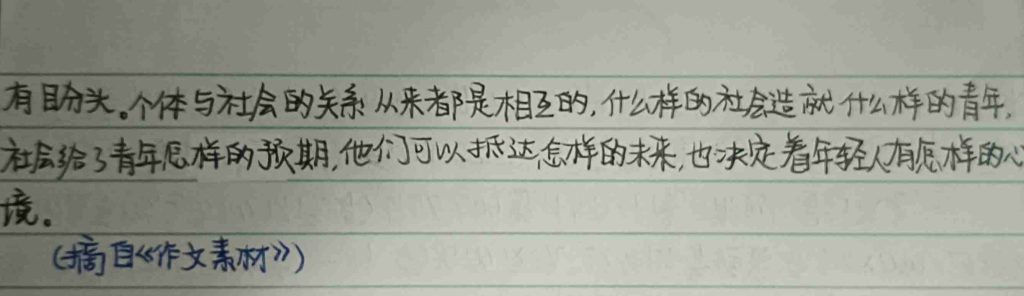 有盼头。个体与社会的关系从来都是相互的,什么样的社会造就什么样的青年,
社会给了青年怎样的预期,他们可以抵达怎样的未来,也决定着年轻人有怎样的心
境。
(摘自《作文素材》)